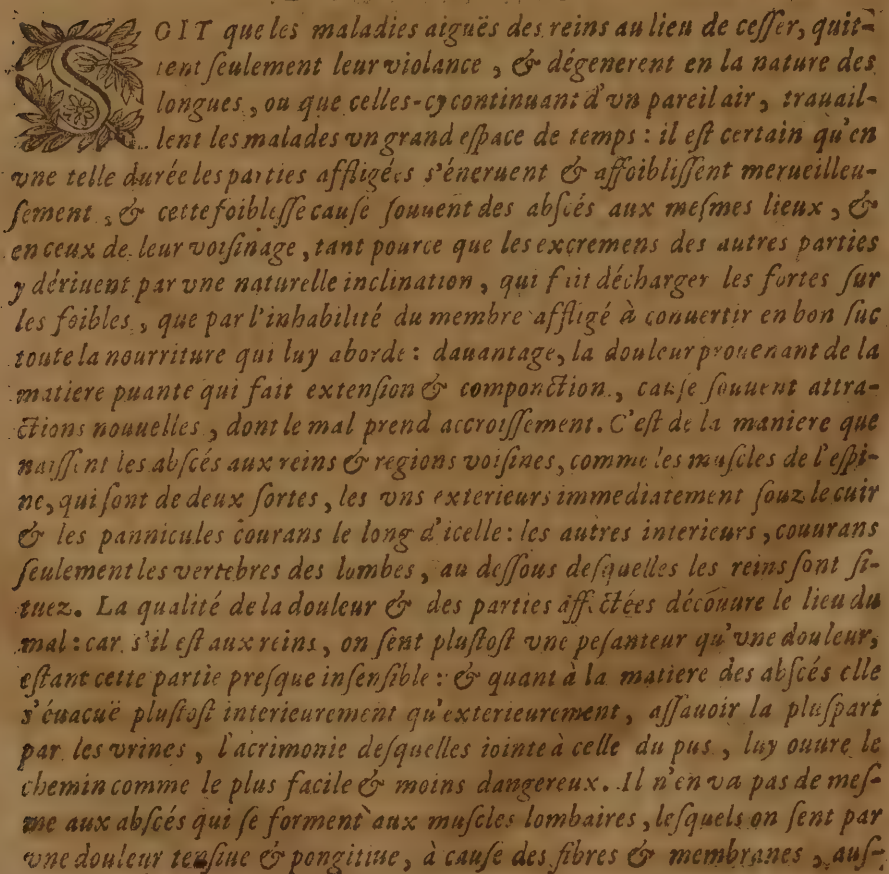 SOIT que les maladies aiguës des reins au lieu de ceſſer, quit-
tent ſeulement leur violance, & dégenerent en la nature des
longues, ou que celles-cy continuant d'vn pareil air, trauail-
lent les malades vn grand eſpace de temps : il eſt certain qu'en
vne telle durée les parties affligées s'éneruent & affoibliſſent merueilleu-
ſement, & cette foibleſſe cauſe ſouuent des abſcés aux meſmes lieux, &
en ceux de leur voiſinage, tant pource que les excremens des autres parties
y dériuent par vne naturelle inclination, qui fait décharger les fortes ſur
les foibles, que par l'inhabilité du membre affligé à conuertir en bon ſuc
toute la nourriture qui luy aborde : dauantage, la douleur prouenant de la
matiere puante qui fait extenſion & componction, cauſe ſouuent attra-
ctions nouuelles, dont le mal prend accroiſſement. C'eſt de la maniere que
naiſſent les abſcés aux reins & regions voiſines, comme les muſcles de l'eſpi-
ne, qui ſont de deux ſortes, les vns exterieurs immediatement ſouz le cuir
& les pannicules courans le long d'icelle : les autres interieurs, couurans
ſeulement les vertebres des lombes, au deſſous deſquelles les reins ſont ſi-
tuez. La qualité de la douleur & des parties affectées découure le lieu du
mal : car s'il eſt aux reins, on ſent pluſtoſt vne peſanteur qu'vne douleur,
eſtant cette partie preſque inſenſible : & quant à la matiere des abſcés elle
s'éuacuë pluſtoſt interieurement qu'exterieurement, aſſauoir la pluſpart
par les vrines, l'acrimonie deſquelles iointe à celle du pus, luy ouure le
chemin comme le plus facile & moins dangereux. Il n'en va pas de meſ-
me aux abſcés qui ſe forment aux muſcles lombaires, leſquels on ſent par
vne douleur tenſiue & pongitiue, à cauſe des fibres & membranes, auſ-